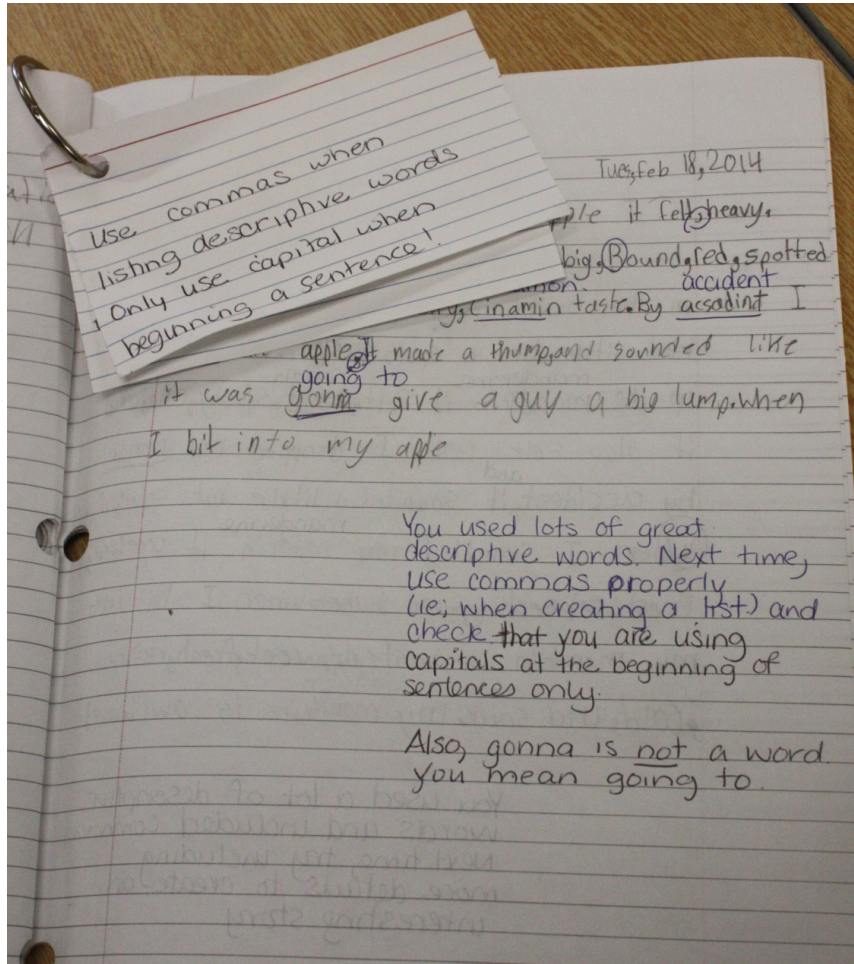 use commas when
listing descriptive words
, Only use capital when
beginning a sentence!
Tues, Feb 18, 2014
it felt, heavy.
big, Round, red, spotted
accident
cinamin taste. By acsadint I
apple. It made a thump, and sounded like
going to
it was gonna give a guy a big lump. when
I bit into my apple
You used lots of great
descriptive words. Next time,
use commas properly
(ie; when creating a list) and
check that you are using
capitals at the beginning of
sentences only.
Also, gonna is not a word.
you mean going to.